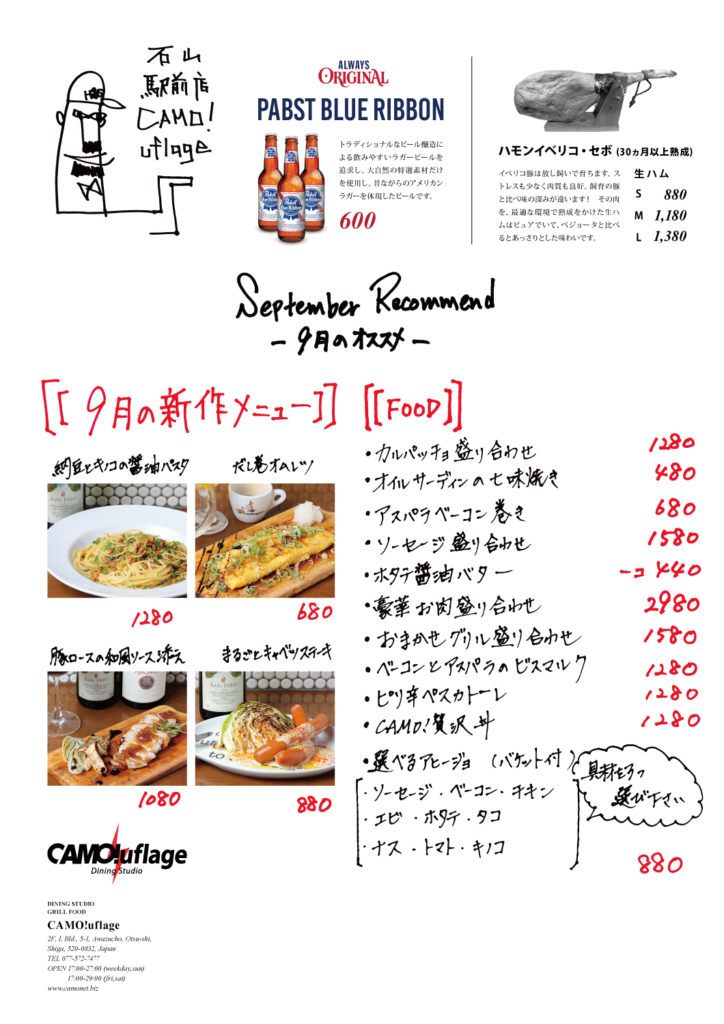 石山
駅前店
CAMO!
uflage
ALWAYS
ORIGINAL
PABST BLUE RIBBON
トラディショナルなビール醸造に
よる飲みやすいラガービールを
追求し、大自然の特選素材だけ
を使用し、昔ながらのアメリカン
ラガーを体現したビールです。
600
ハモンイベリコ・セボ (30ヵ月以上熟成)
イベリコ豚は放し飼いで育ちます。ス
トレスも少なく肉質も良好。飼育の豚
と比べ味の深みが違います! その肉
を、最適な環境で熟成をかけた生ハ
ムはピュアでいて、ベジョータと比べ
るとあっさりとした味わいです。
生ハム
S 880
M 1,180
L 1,380
September Recommend
ー9月のオススメー
[[9月の新作メニュー]]
納豆とキノコの醤油パスタ
1280
だし巻オムレツ
680
豚ロースの和風ソース添え
1080
まるごとキャベツステーキ
880
[[FOOD]]
・カルパッチョ盛り合わせ 1280
・オイルサーディンの七味焼き 480
・アスパラベーコン巻き 680
・ソーセージ盛り合わせ 1580
・ホタテ醤油バター 一コ 440
・豪華お肉盛り合わせ 2980
・おまかせグリル盛り合わせ 1580
・ベーコンとアスパラのビスマルク 1280
・ピリ辛ペスカトーレ 1280
・CAMO!贅沢丼 1280
・選べるアヒージョ (バケット付)
・ソーセージ・ベーコン・チキン
・エビ・ホタテ・タコ
・ナス・トマト・キノコ
選び下さい
880
CAMO!uflage
Dining Studio
DINING STUDIO
GRILL FOOD
CAMO!uflage
2F, L Bld., 5-1, Awazucho, Otsu-shi,
Shiga, 520-0832, Japan
TEL 077-572-7477
OPEN 17:00-27:00 (weekday,sun)
17:00-29:00 (fri,sat)
www.camonet.biz